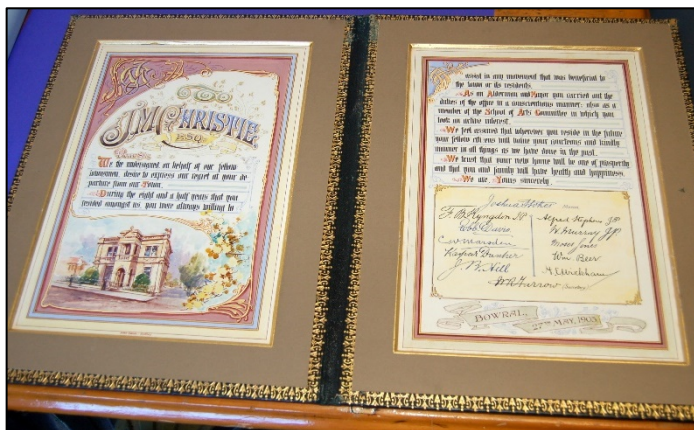 To
J.M. CHRISTIE,
ESQ.
Dear Sir
We the undersigned on behalf of our fellow
townsmen, desire to express our regret at your de-
parture from our Town.
During the eight and a half years that you
resided amongst us, you were always willing to
assist in any movement that was beneficial to
the town or its residents.
As an Alderman and Mayor you carried out the
duties of the office in a conscientious manner; also as a
member of the School of Arts Committee in which you
took an active interest.
We feel assured that wherever you reside in the future
your fellow citizens will value your courteous and kindly
manner in all things as we have done in the past.
We trust that your new home will be one of prosperity
and that you and family will have health and happiness.
We are, Yours sincerely.
Joshua Stokes
F. B. Kyngdon
Alfred Stephens JP
Rob Davis
W. Murray JP
C W Marsden
Moses Jones
Wm Beer
J. B. Hill
M. C. Wickham
W R Furrow
BOWRAL,
27TH MAY, 1903